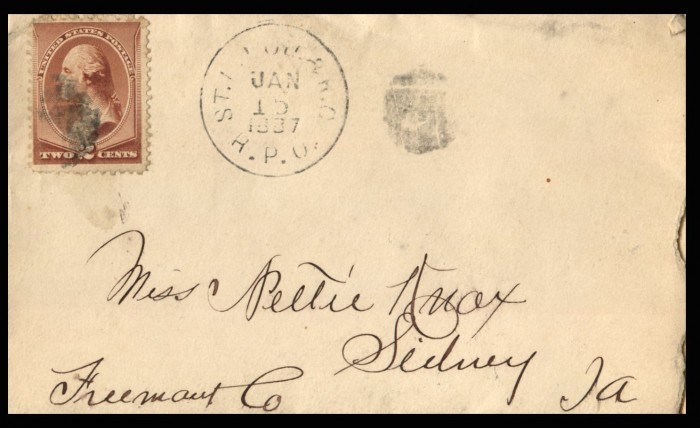 UNITED STATES POSTAGE
TWO 2 CENTS
ST.
JAN
15
1887
R.P.O.
Miss Nettie Knox
Sidney
Freemont Co Ia